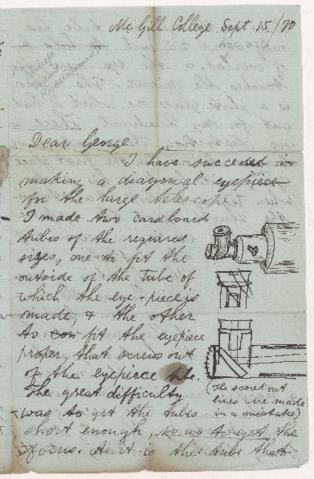 Mc Gill College Sept 15./90
Dear George
I have succeeded in
making a diagonal eyepiece
for the large telescope
I made two cardboard
tubes of the required
sizes, one to fit the
outside of the tube of
which the eye-piece is
made, & the other
to fit the eyepiece
proper, that screws out
of the eyepiece tube.
The great difficulty
was to get the tubes
short enough, so as to get the
focus. As it is the tube that
(The scored out
lines were made
in a mistake)